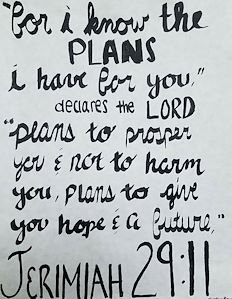 "for i know the
PLANS
i have for you,"
declares the LORD
"plans to prosper
you & not to harm
you, plans to give
you hope & a future."
JERIMIAH 29:11